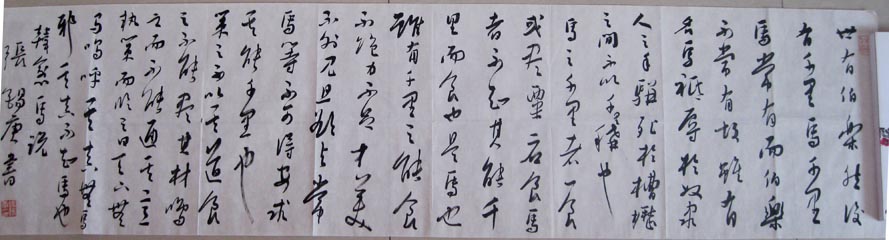 世有伯樂然後
有千里馬千里
馬常有而伯樂
不常有故雖有
名馬祗辱於奴隸
人之手駢死於槽櫪
之間不以千里稱也
馬之千里者一食
或盡粟一石食馬
者不知其能千
里而食也是馬也
雖有千里之能食
不飽力不足才美
不外見且欲與常
馬等不可得安求
其能千里也
策之不以其道食
之不能盡其材鳴
之而不能通其意
執策而臨之曰天下無
馬嗚呼其真無馬
耶其真不知馬也
韓愈馬說
張錫庚書